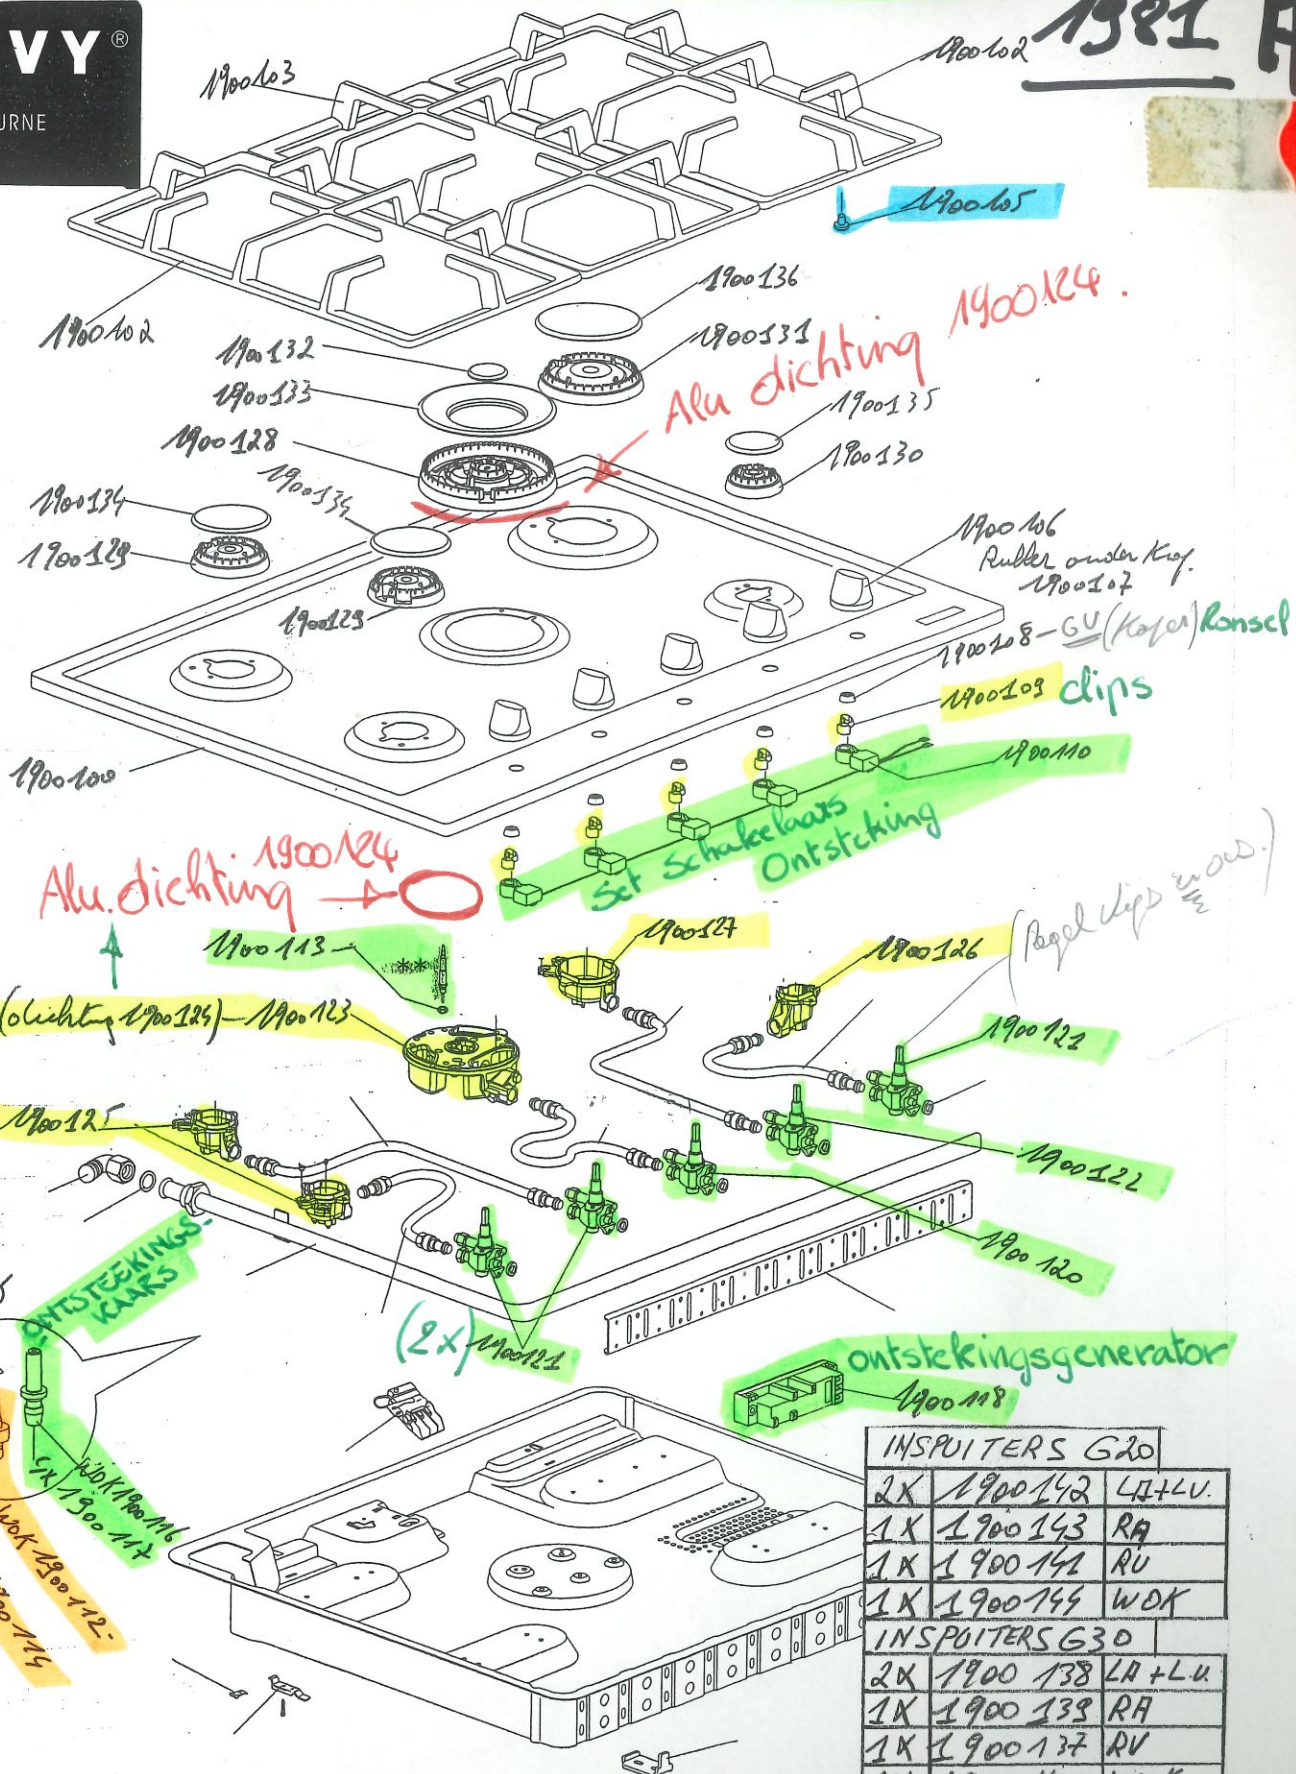 VY®
URNE
1981
1900103
1900102
1900105
1900102
1900136
1900132
1900131
Alu dichting 1900124.
1900133
1900135
1900128
1900130
1900134
1900134
1900129
1900106
Rubber onder Knop.
1900107
1900129
1900108 - GV (Koper) Ronsel
1900109 clips
1900110
1900100
Set Schakelaars
Ontsteking
Alu. dichting 1900124
1900113
***
1900127
1900126
(dichting 1900124) - 1900123
1900121
1900125
1900122
1900120
ONTSTEEKINGS-
KAARS
(2x) 1900121
ontstekingsgenerator
1900118
WOK 1900116
4x 1900117
WOK 1900112.
1900114
INSPUITERS G20
2X 1900142 LA+LV.
1X 1900143 RA
1X 1900141 RV
1X 1900144 WOK
INSPUITERS G30
2X 1900 138 LA+L.V.
1X 1900 139 RA
1X 1900137 RV